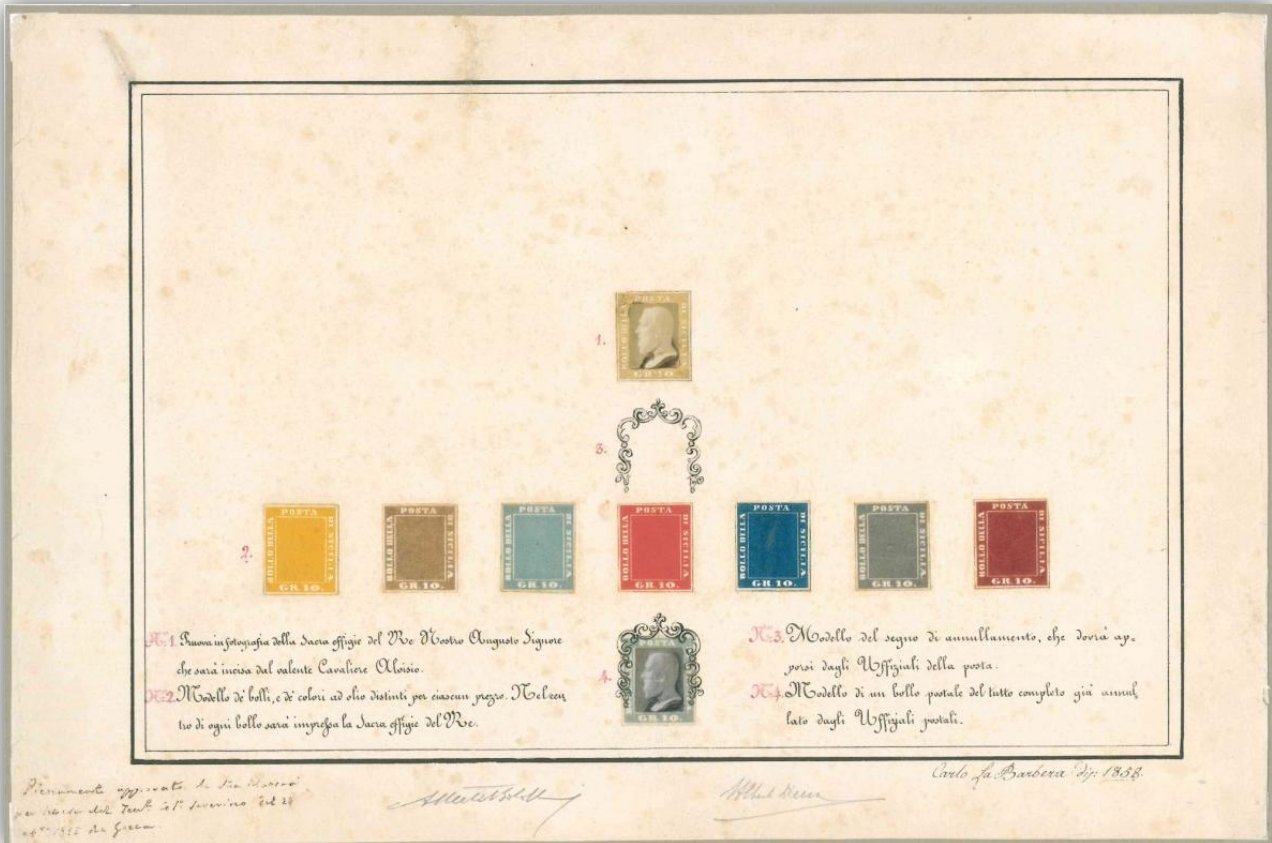 1.
POSTA
BOLLO DELLA
DI SICILIA
GR 10
3.
2.
POSTA
BOLLO DELLA
DI SICILIA
GR 10.
POSTA
BOLLO DELLA
DI SICILIA
GR 10.
POSTA
BOLLO DELLA
DI SICILIA
GR 10.
POSTA
BOLLO DELLA
DI SICILIA
GR 10.
POSTA
BOLLO DELLA
DI SICILIA
GR 10.
POSTA
BOLLO DELLA
DI SICILIA
GR 10.
POSTA
BOLLO DELLA
DI SICILIA
GR 10.
N.1. Pruova in fotografia della Sacra effigie del Re Nostro Augusto Signore
che sarà incisa dal valente Cavaliere Aloisio.
N.2. Modello de' bolli, e de' colori ad olio distinti per ciascun prezzo. Nel cen
tro di ogni bollo sarà impressa la Sacra effigie del Re.
4.
POSTA
GR 10.
N.3. Modello del segno di annullamento, che dovrà ap-
porsi dagli Uffiziali della posta.
N.4. Modello di un bollo postale del tutto completo già annul
lato dagli Uffiziali postali.
Carlo La Barbera dip: 1858.
approvato da Sua Maestà